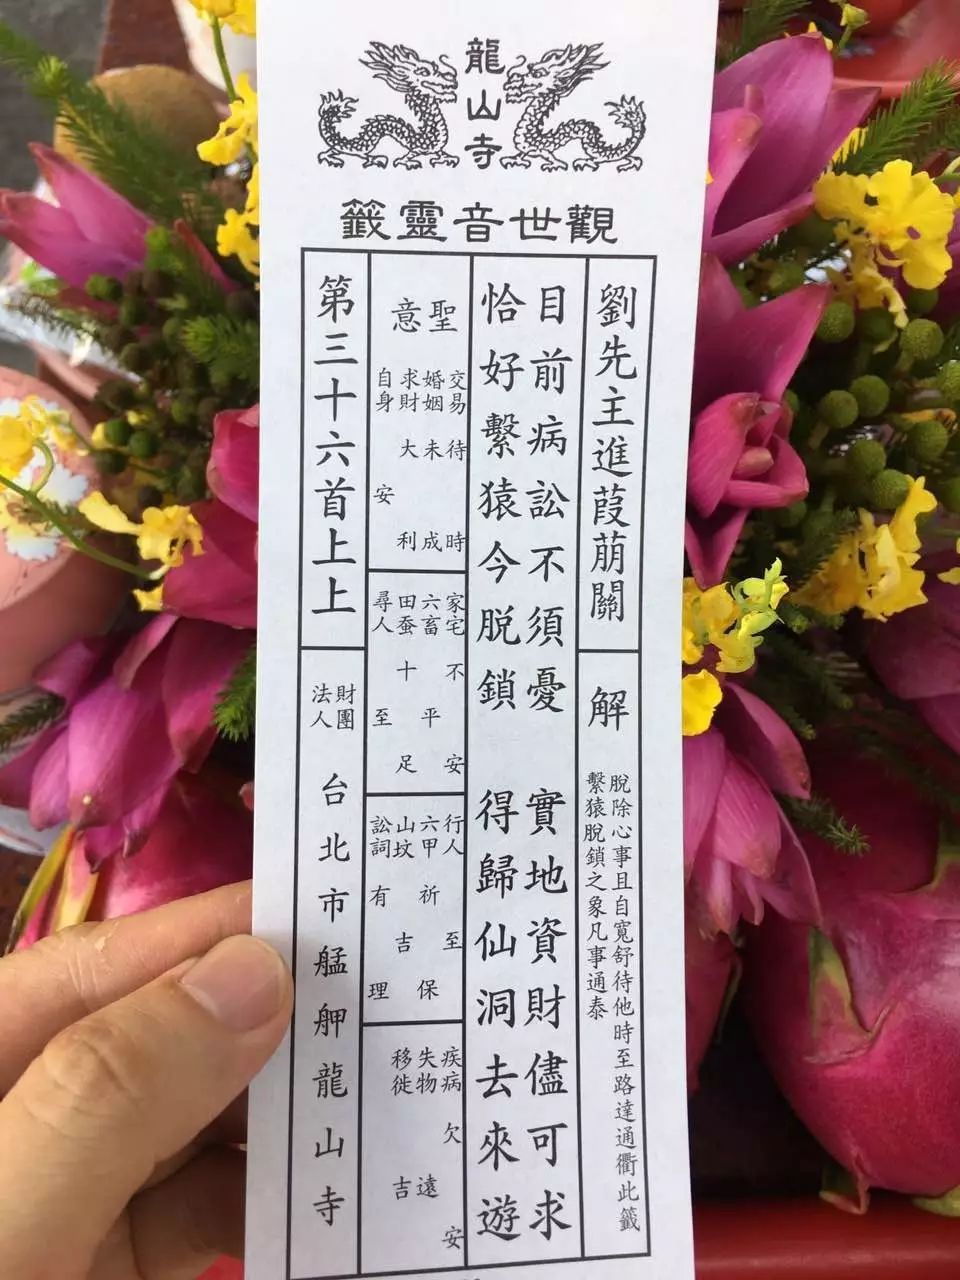 龍山寺
觀世音靈籤
劉先主進葭萠關
解
脫除心事且自寬舒待他時至路達通衢此籤
繫猿脫鎖之象凡事通泰
目前病訟不須憂 實地資財儘可求
恰好繫猿今脫鎖 得歸仙洞去來遊
聖意
交易待時
婚姻未成
求財大利
自身安
家宅不安
六畜平
田蚕十足
尋人至
行人至
六甲祈保
山坟吉
訟詞有理
疾病欠安
失物遠
移徙吉
第三十六首上上
財團法人 台北市艋舺龍山寺